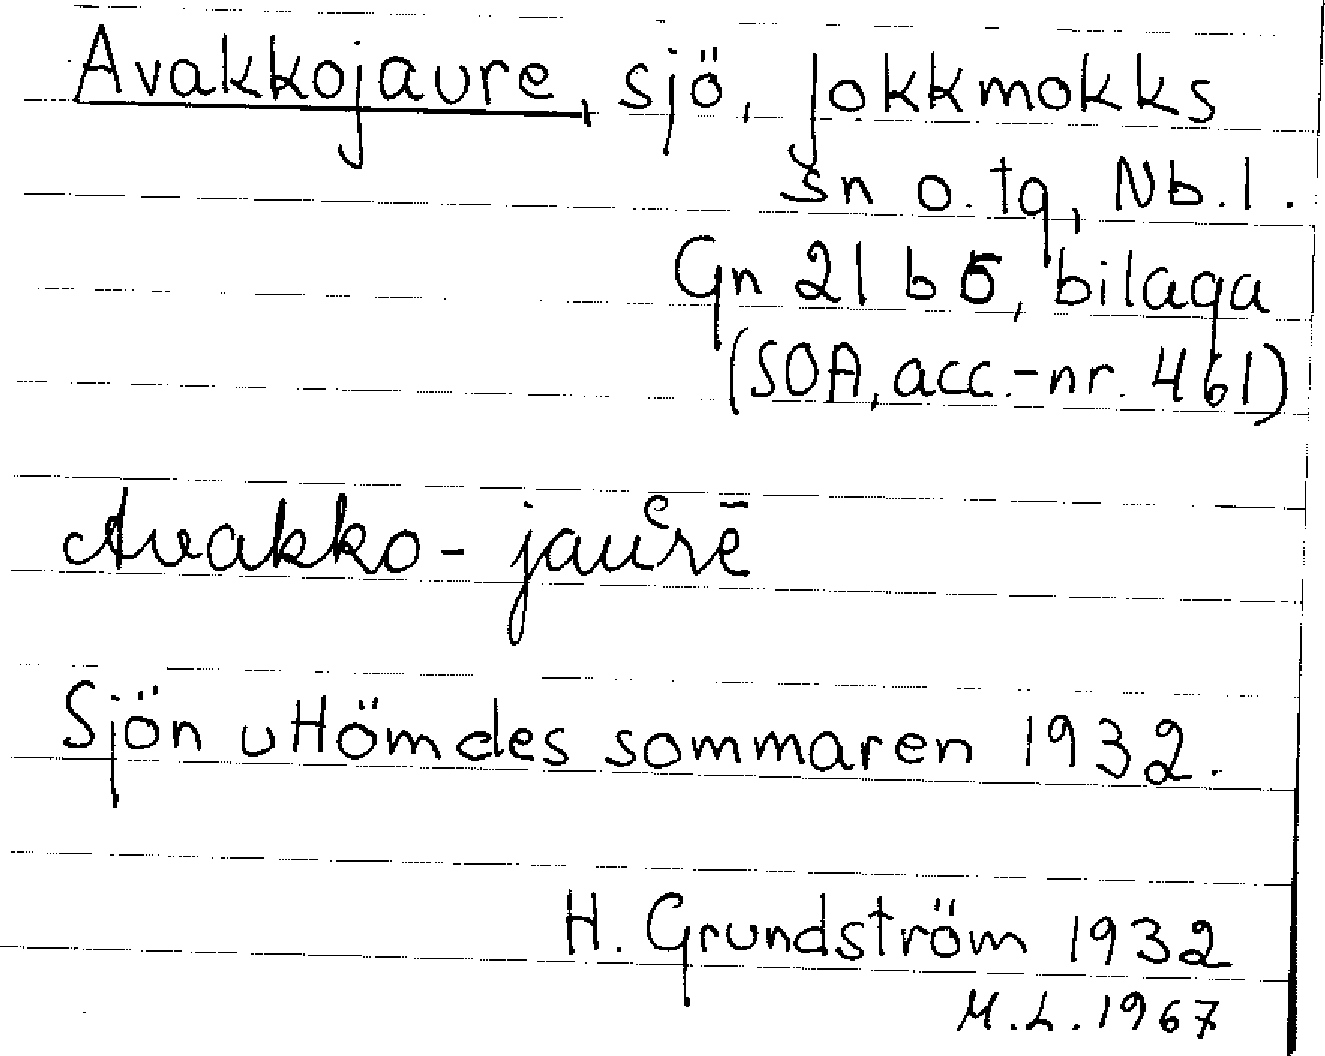 Avakkojaure, sjö, Jokkmokks
sn o. tg, Nb. l.
Gn 21 b 5, bilaga
(SOA, acc.-nr. 461)
Avakko-jaurē
Sjön uttömdes sommaren 1932.
H. Grundström 1932
M.L. 1967